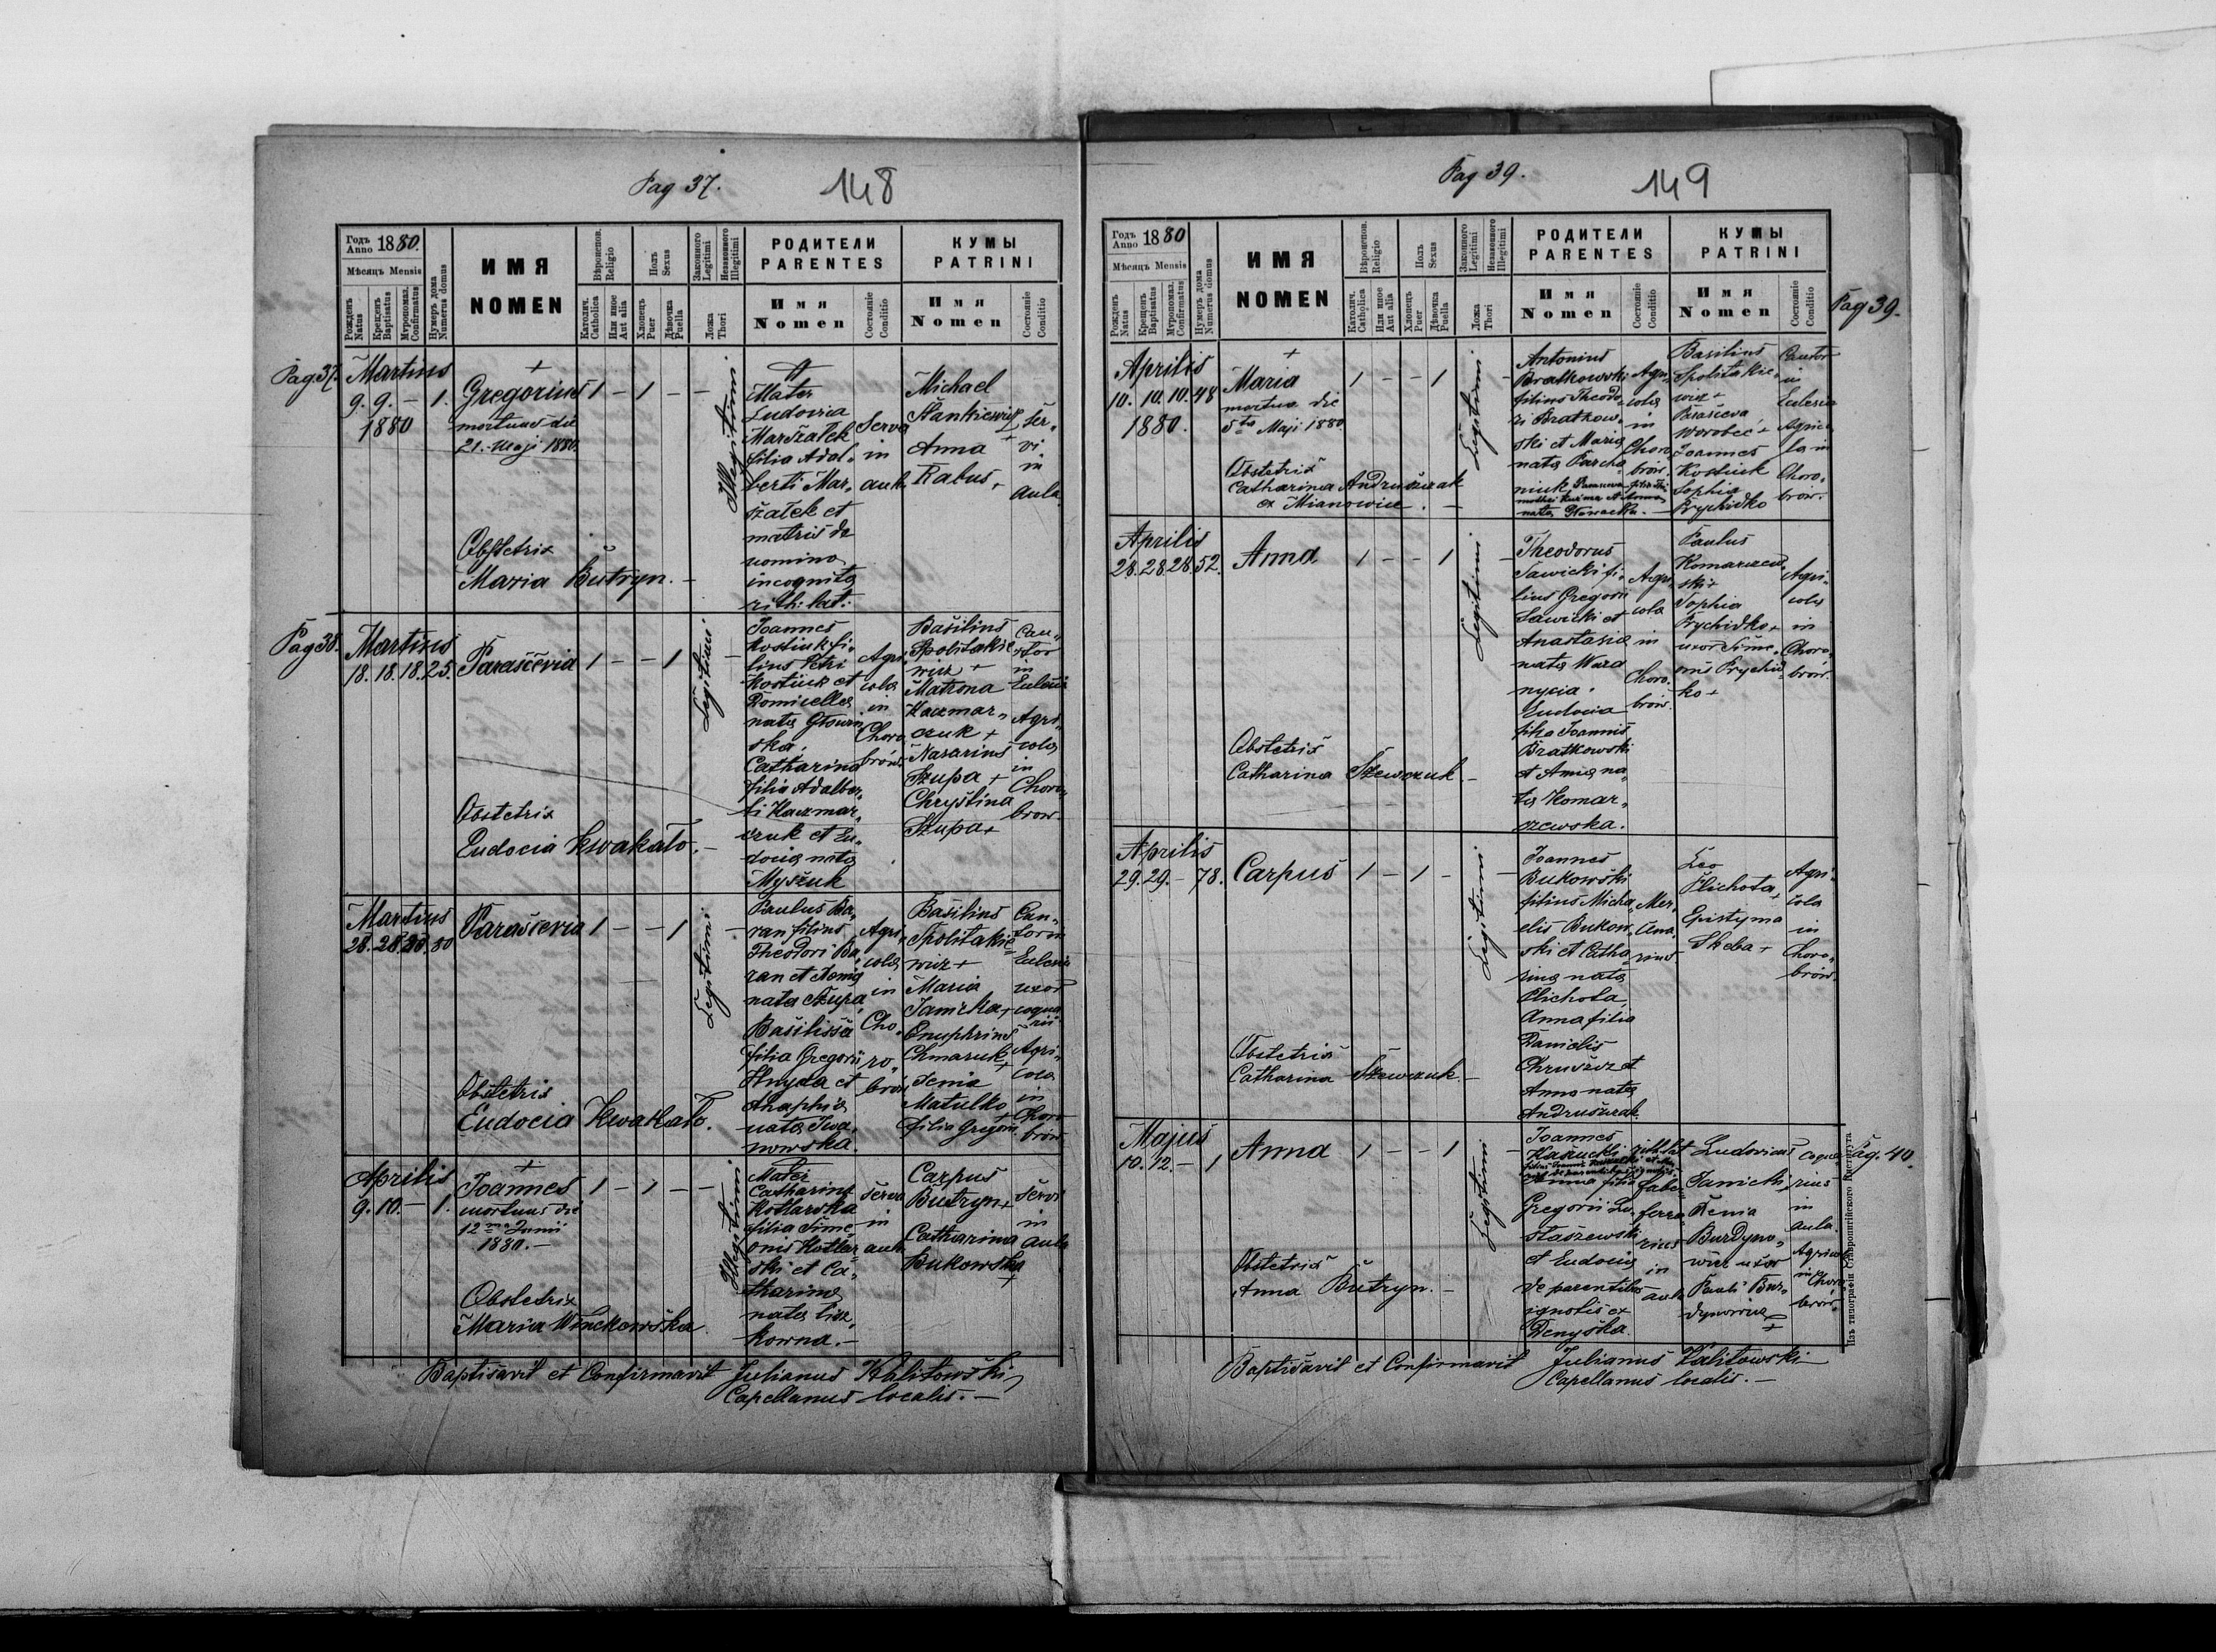 Pag 37.
148
Годъ Anno 1880.
Мѣсяцъ Mensis
Рожденъ Natus
Крещенъ Baptisatus
Мѵропомаз. Confirmatus
Нумеръ дома Numerus domus
ИМЯ
NOMEN
Вѣроиспов. Religio
Католич. Catholica
Или иное Aut alia
Полъ Sexus
Хлопецъ Puer
Дѣвочка Puella
Законного Legitimi
Незаконного Illegitimi
Ложа Thori
РОДИТЕЛИ
PARENTES
Имя
Nomen
Состояніе Conditio
КУМЫ
PATRINI
Имя
Nomen
Состояніе Conditio
Pag 37.
Martius
9. 9. – 1.
1880
+
Gregorius
mortuus die
21. Maji 1880.
1 – 1 –
Illegitimi
Mater
Ludovia
Marszałek
filia Adal-
berti Mar-
szałek et
matris de
nomino
incognita
rith: lat:
Serva
in
aula
Michael
Stankiewicz
+
Anna
Rabus +
ser-
vi
in
aula
Obstetrix
Maria Butryn. –
Pag 38.
Martius
18. 18. 18. 25.
Parascevia
1 – – 1
Legitimi
Joannes
Kostiuk fi-
lius Petri
Kostiuk et
Domicella
nata Głowin-
ska.
Catharina
filia Adalber-
ti Kaczmar-
czuk et Eu-
docia nata
Myszuk
Agri-
cola
in
Choro-
brów
Basilius
Spolitakie-
wicz +
Matrona
Kaczmar-
czuk +
Nazarius
Szupa +
Chrystina
Szupa +
Can-
tor
in
Eclesia
Agri-
cola
in
Choro-
brow.
Obstetrix
Eudocia Kwakało. –
Martius
28. 28. 30. 80
Parascevia
1 – – 1
Legitimi
Paulus Ba-
ran filius
Theodori Ba-
ran et Xenia
nata Szupa,
Basilissa
filia Gregorii
Hnyda et
Ahaphia
nata Iwa-
nowska.
Agri-
cola
in
Cho-
ro-
brów
Basilius
Spolitakie-
wicz +
Maria
Janicka +
Onuphrius
Chmaruk +
Xenia
Matulko +
filia Gregorii
Can-
tor in
Eclesia
uxor
coqua-
rii
Agri-
cola
in
Choro-
brów
Obstetrix
Eudocia Kwakało.
Aprilis
9. 10. – 1.
+
Joannes
mortuus die
12 ma Junii
1880. –
1 – 1 –
Illegitimi
Mater
Catharina
Kotlarska
filia Sime-
onis Kotlar-
ski et Ca-
tharina
nata Lisz-
kowna. –
Serva
in
aula
Carpus
Butryn +
Catharina
Bukowska
+
servi
in
aula
Obstetrix
Maria Winckowska
Baptisavit et Confirmavit Julianus Kalitowski
Capellanus localis. –
Pag 39.
149
Годъ Anno 1880
Мѣсяцъ Mensis
Рожденъ Natus
Крещенъ Baptisatus
Мѵропомаз. Confirmatus
Нумеръ дома Numerus domus
ИМЯ
NOMEN
Вѣроиспов. Religio
Католич. Catholica
Или иное Aut alia
Полъ Sexus
Хлопецъ Puer
Дѣвочка Puella
Законного Legitimi
Незаконного Illegitimi
Ложа Thori
РОДИТЕЛИ
PARENTES
Имя
Nomen
Состояніе Conditio
КУМЫ
PATRINI
Имя
Nomen
Состояніе Conditio
Pag 39.
Aprilis
10. 10. 10. 48
1880.
+
Maria
mortua die
5 ta Maji 1880
1 – – 1
Legitimi
Antonius
Bratkowski
filius Theodo-
ri Bratkow-
ski et Maria
nata Parcha-
niuk
Agri-
cola
in
Choro-
brów.
Basilius
Spolitakie-
wicz +
Parasceva
Worobeć +
Joannes
Kostiuk
Sophia
Prychidko
Cantor
in
Eclesia
Agrico-
la in
Choro-
brów.
Obstetrix
Catharina Andruszczak
ex Mianowice. –
Aprilis
28. 28. 28. 52.
Anna
1 – – 1
Legitimi
Theodorus
Sawicki fi-
lius Gregorii
Sawicki et
Anastasia
nata Wara-
nycia.
Eudocia
filia Joannis
Bratkowski
et Anna na-
ta Komar-
szewska.
Agri-
cola
in
Choro-
brów.
Paulus
Komarzew-
ski +
Sophia
Prychidko +
uxor Sime-
onis Prychid-
ko +
Agri-
cola
in
Choro-
brów.
Obstetrix
Catharina Szewczuk –
Aprilis
29. 29. – 78.
Carpus
1 – 1 –
Legitimi
Joannes
Bukowski
filius Micha-
elis Bukow-
ski et Catha-
rina nata
Plichota,
Anna filia
Danielis
Chruszcz et
Anna nata
Andruszczak.
Mer-
cena-
rius
Leo
Plichota
+
Epistyma
Skeba +
Agri-
cola
in
Choro-
brów.
Obstetrix
Catharina Szewczuk. –
Majus
10. 12. – 1
Anna
1 – – 1
Legitimi
Joannes
Kaszucki
Anna filia
Gregorii Lu-
staszewski
et Eudocia
de parentibus
ignotis ex
Denyska.
rith: lat
faber
ferra-
rius
in
aula
Ludovicus
Janicki +
Xenia
Burdyno-
wicz uxor
Pauli Bur-
dynowicz
+
Coqua-
rius
in
aula.
Agricola
in
Choro-
brów.
Pag. 40.
Obstetrix
Anna Butryn. –
Baptisavit et Confirmavit Julianus Kalitowski
Capellanus localis. –
Изъ типографіи Ставропигійского Института